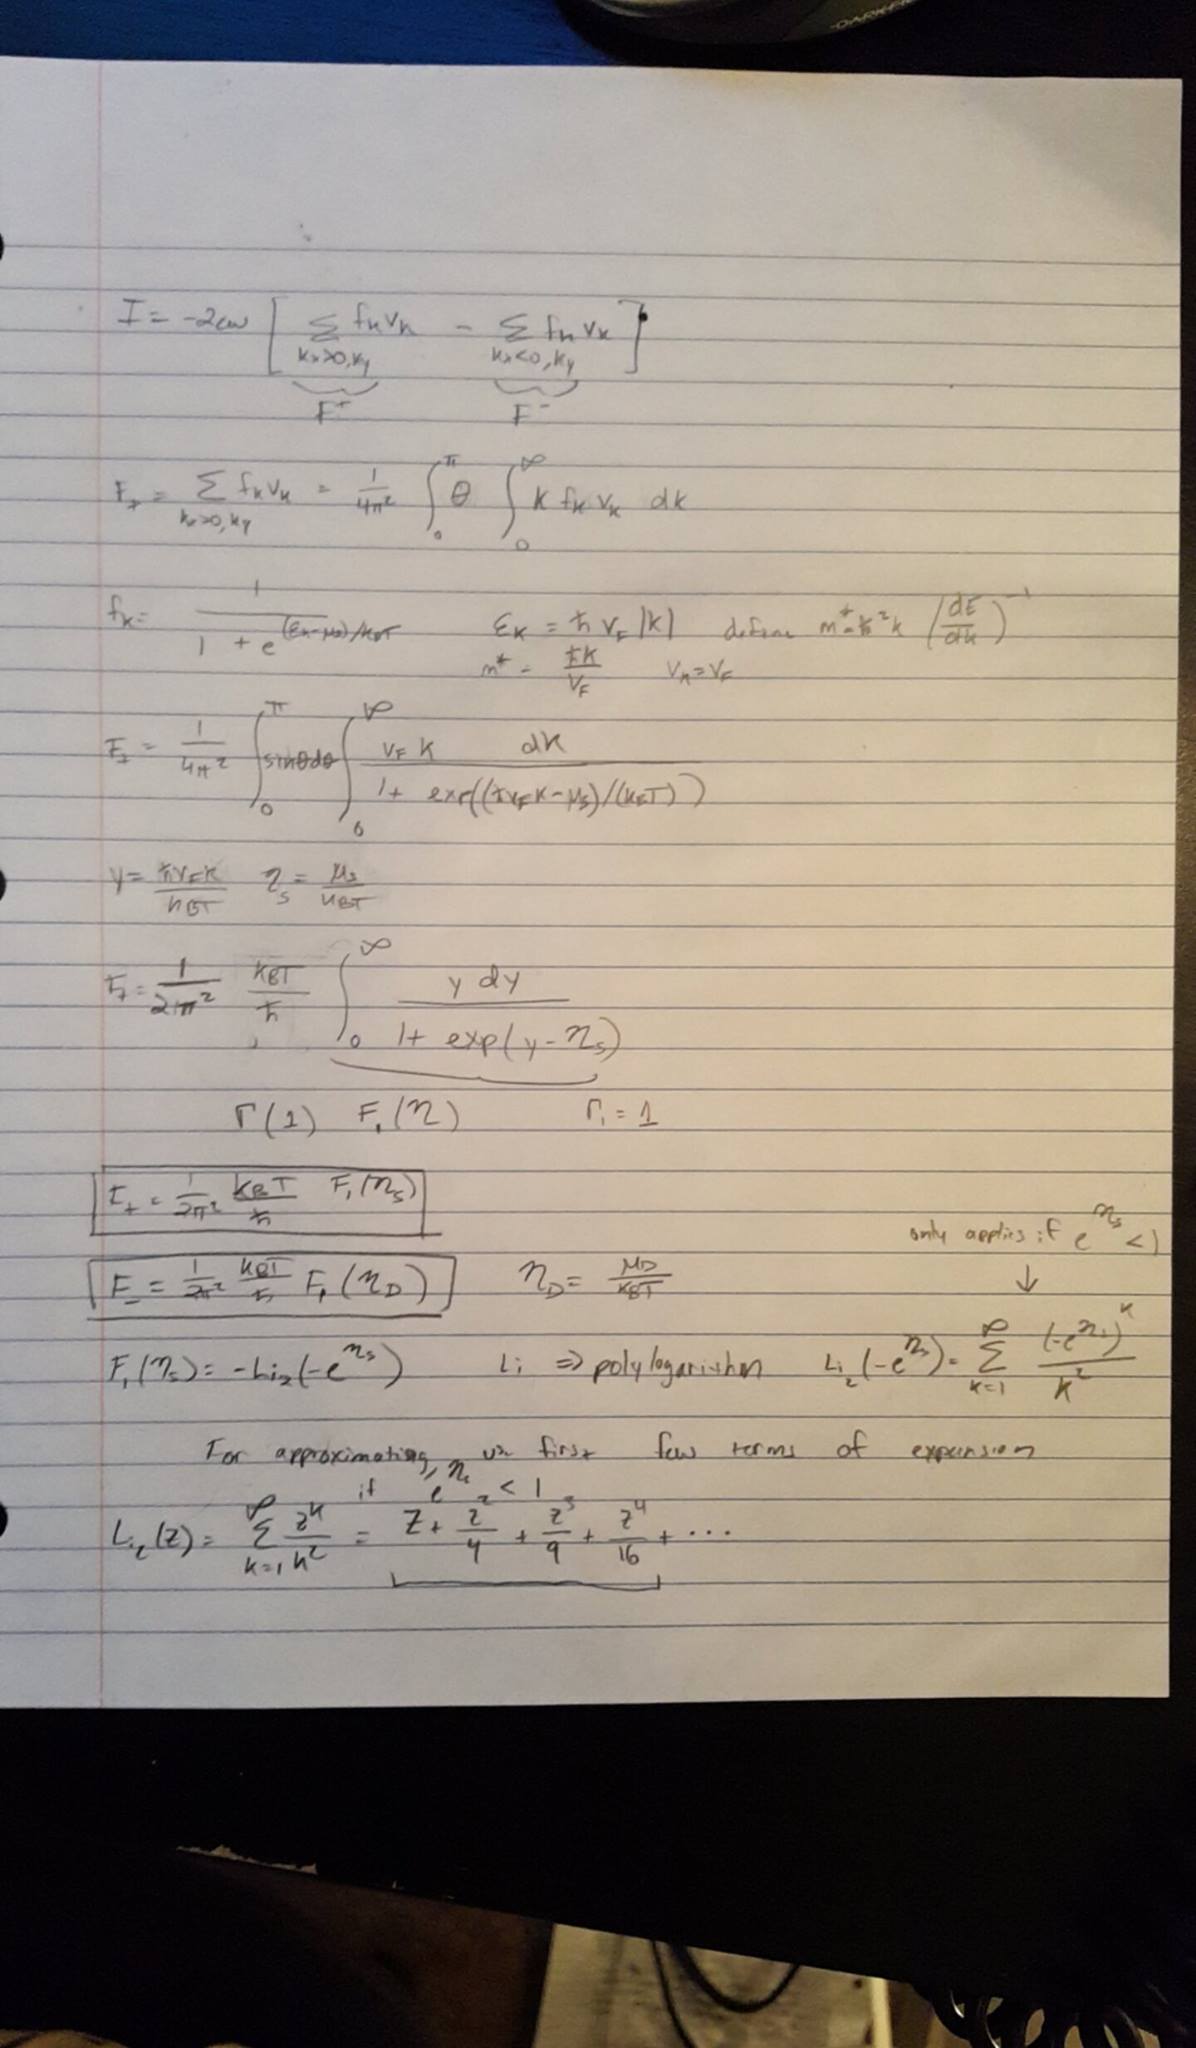 DARKER
I = -2ew [ Σ_{kx>0,ky} f_k v_k - Σ_{kx<0,ky} f_k v_k ]
F⁺ F⁻
F₊ = Σ_{kx>0,ky} f_k v_k = 1/4π² ∫₀^π θ ∫₀^∞ k f_k v_k dk
f_k = 1/(1 + e^{(ε_k-μ_s)/k_BT}) ε_k = ħ v_F |k| define m* = ħ²k (dE/dk)⁻¹
m* = ħk/v_F v_k = v_F
F₊ = 1/4π² ∫₀^π sinθdθ ∫₀^∞ v_F k dk/(1 + exp((ħv_Fk-μ_s)/(k_BT)))
y = ħv_Fk/k_BT η_s = μ_s/k_BT
F₊ = 1/2π² k_BT/ħ ∫₀^∞ y dy/(1+ exp(y-η_s))
Γ(1) F₁(η) Γ₁ = 1
F₊ = 1/2π² k_BT/ħ F₁(η_s)
only applies if e^{η_s} < 1
↓
F₋ = 1/2π² k_BT/ħ F₁(η_D) η_D = μ_D/k_BT
F₁(η_s) = -Li₂(-e^{η_s}) Li ⇒ polylogarithm Li₂(-e^{η_s}) = Σ_{k=1}^∞ (-e^{η_s})^k/k²
For approximating, use first few terms of expansion
if e^{η_s} < 1
Li₂(z) = Σ_{k=1}^∞ z^k/k² = z + z²/4 + z³/9 + z⁴/16 + ...